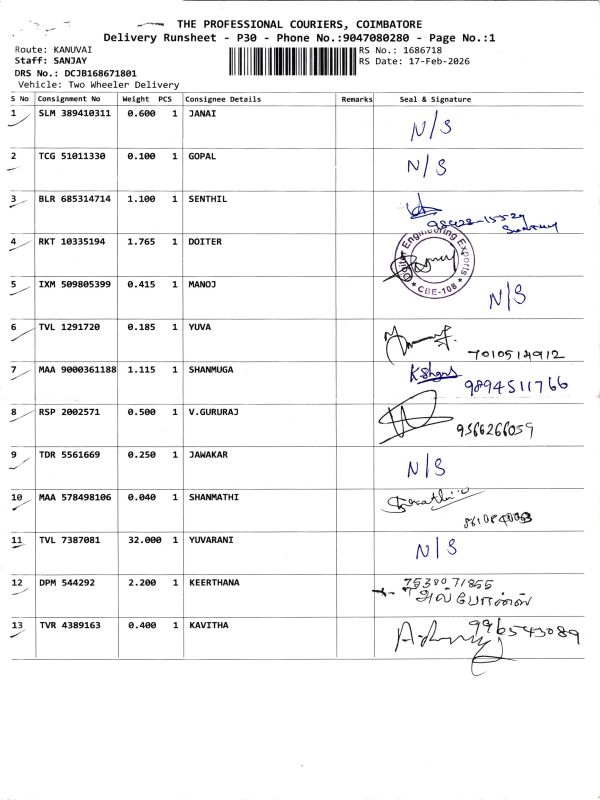 THE PROFESSIONAL COURIERS, COIMBATORE
Delivery Runsheet - P30 - Phone No.:9047080280 - Page No.:1
Route: KANUVAI RS No.: 1686718
Staff: SANJAY RS Date: 17-Feb-2026
DRS No.: DCJB168671801
Vehicle: Two Wheeler Delivery
S No Consignment No Weight PCS Consignee Details Remarks Seal & Signature
1 SLM 389410311 0.600 1 JANAI N/S
2 TCG 51011330 0.100 1 GOPAL N/S
3 BLR 685314714 1.100 1 SENTHIL
4 RKT 10335194 1.765 1 DOITER Engineering Exports CBE-108
5 IXM 509805399 0.415 1 MANOJ N/S
6 TVL 1291720 0.185 1 YUVA
7 MAA 9000361188 1.115 1 SHANMUGA 9894511766
8 RSP 2002571 0.500 1 V.GURURAJ 9566266059
9 TDR 5561669 0.250 1 JAWAKAR N/S
10 MAA 578498106 0.040 1 SHANMATHI
11 TVL 7387081 32.000 1 YUVARANI N/S
12 DPM 544292 2.200 1 KEERTHANA 7538071855
13 TVR 4389163 0.400 1 KAVITHA 9965543089